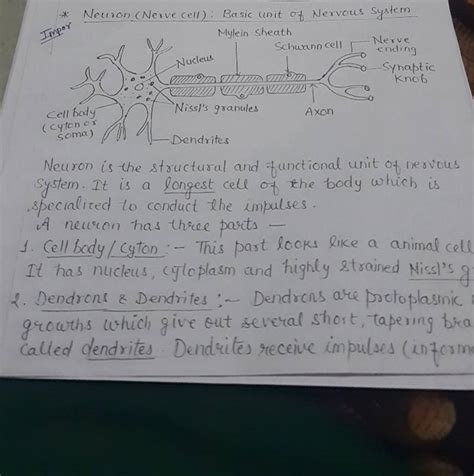 * Neuron (Nerve cell): Basic unit of Nervous System
Impor
Mylein Sheath
Nucleus
Schwann cell
Nerve ending
Synaptic Knob
Cell body (Cyton or Soma)
Nissl's granules
Axon
Dendrites
Neuron is the structural and functional unit of nervous
system. It is a longest cell of the body which is
specialized to conduct the impulses.
A neuron has three parts —
1. Cell body / Cyton :— This part looks like a animal cell
It has nucleus, cytoplasm and highly strained Nissl's g
2. Dendrons & Dendrites :— Dendrons are protoplasmic
growths which give out several short, tapering bra
called dendrites. Dendrites receive impulses (informa